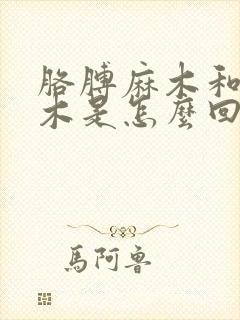 胳膊麻木和
木是怎麼回
馬阿魯